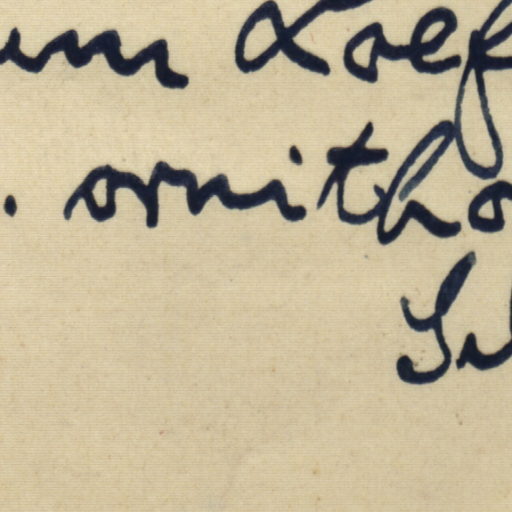 um Loef
. ornitho